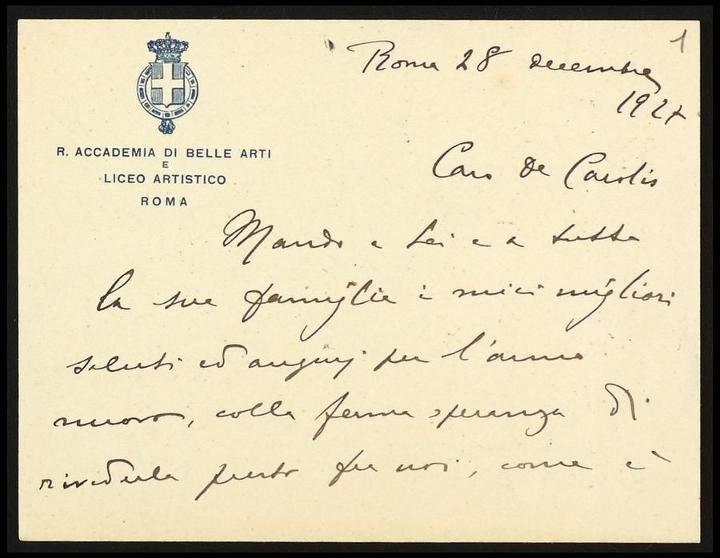 1
Roma 28 decembre
1927
R. ACCADEMIA DI BELLE ARTI
E
LICEO ARTISTICO
ROMA
Caro De Carolis
Mando a Lei e a tutta
la sua famiglia i miei migliori
saluti ed augurj per l'anno
nuovo, colla ferma speranza di
rivederla presto fra noi, come è